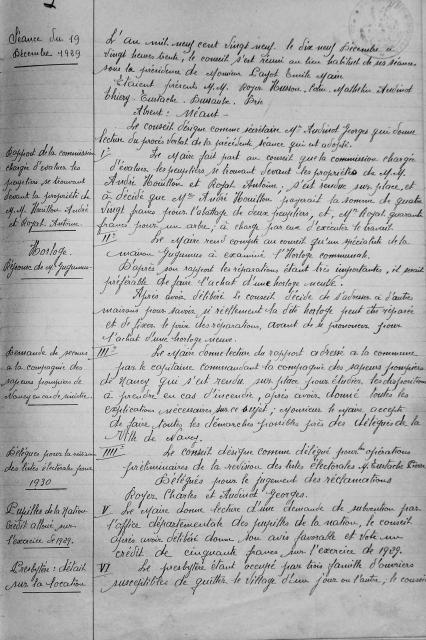 Séance du 19
Décembre 1929
L'an mil neuf cent vingt neuf le dix neuf Décembre à
vingt heures trente, le conseil s'est réuni au lieu habituel de ses séances
sous la présidence de Monsieur Layot Emile Maire
Etaient présents M.M. Royer Husson
Mathelin Audinot
Thiery Eustache
Absent : Néant
Le conseil désigne comme secrétaire Mr Audinot Georges qui donne
lecture du procès verbal de la précédente séance qui est adopté.
Rapport de la commission
chargée d'évaluer les
peupliers se trouvant
devant la propriété de
M.M. Houillon André
et Royat Antoine.
I° Le Maire fait part au conseil que la commission chargée
d'évaluer les peupliers, se trouvant devant les propriétés de M.M.
André Houillon et Royat Antoine, s'est rendue sur place, et
a décidé que Mr André Houillon payerait la somme de quatre
vingt francs pour l'abattage de deux peupliers, et, Mr Royat quarante
francs pour un arbre, à charge par eux d'exécuter le travail
Horloge.
Réponse de Mr Gugumus
II° Le Maire rend compte au conseil qu'un spécialiste de la
maison Gugumus a examiné l'Horloge communale.
D'après son rapport les réparations étant très importantes, il serait
préférable de faire l'achat d'une horloge neuve.
Après avoir délibéré le conseil décide de s'adresser à d'autres
maisons pour savoir si réellement la dite horloge peut être réparée
et de fixer le prix des réparations, avant de se prononcer pour
l'achat d'une horloge neuve.
Demande de secours
à la compagnie des
sapeurs pompiers de
Nancy en cas de sinistre
III° Le Maire donne lecture du rapport adressé à la commune
par le capitaine commandant la compagnie des sapeurs pompiers
de Nancy qui s'est rendu sur place pour étudier les dispositions
à prendre en cas d'incendie, après avoir donné toutes les
explications nécessaires sur ce sujet ; Monsieur le Maire accepte
de faire toutes les démarches possibles près des délégués de la
Ville de Nancy.
Délégués pour la révision
des listes électorales pour
1930
IIII° Le conseil désigne comme délégué pour les opérations
préliminaires de la revision des listes électorales M. Eustache Pierre
Délégués pour le jugement des réclamations
Royer Charles et Audinot Georges.
Pupilles de la Nation
Crédit alloué sur
l'exercice de 1929.
V Le Maire donne lecture d'une demande de subvention par
l'office départementale des pupilles de la nation, le conseil
après avoir délibéré donne son avis favorable et vote un
crédit de cinquante francs sur l'exercice de 1929.
Presbytère : détail
sur la location
VI Le presbytère étant occupé par trois famille d'ouvriers
susceptibles de quitter le village d'un jour ou l'autre ; le conseil